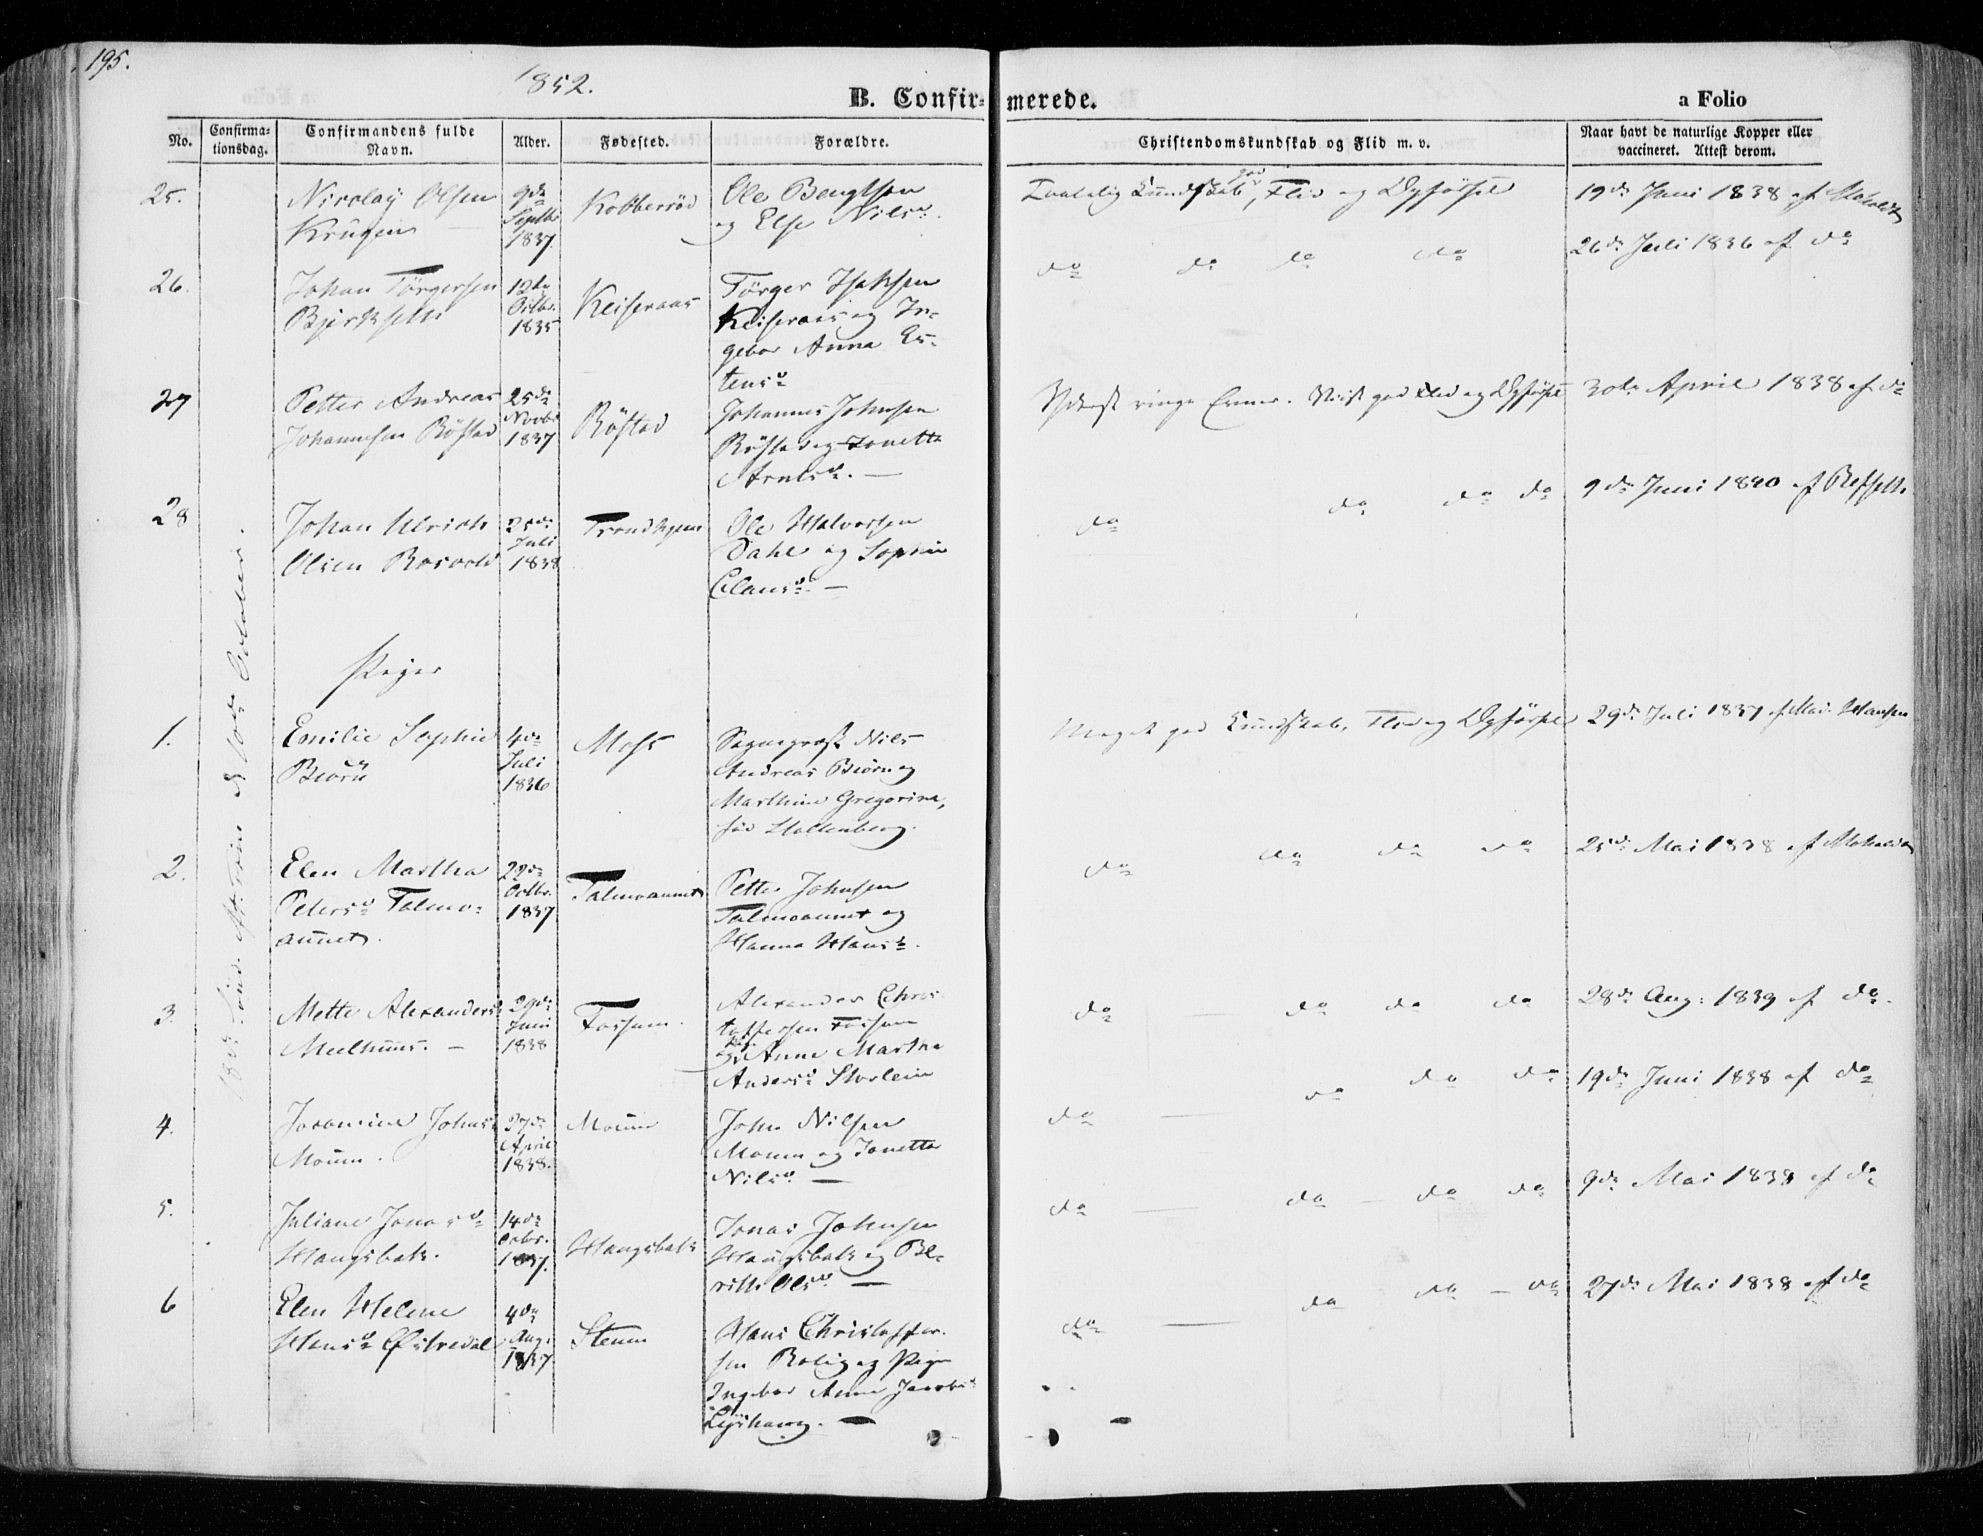 195.
1852.
B. Confirmerede.
a Folio
No.
Confirma-
tionsdag.
Confirmandens fulde
Navn.
Alder.
Fødested.
Forældre.
Christendomskundskab og Flid m. v.
Naar havt de naturlige Kopper eller
vaccineret. Attest derom.
25.
Nicolay Olsen
9de
Septbr
1837
Kobberrød
Ole Bengtsen
og Else Nilsd.
god
Taalelig Kundskab, Flid og Opførsel
19de Juni 1838 af
26.
Johan Törgersen
12te
Octbr.
1835
Keiseraas
Törger
Keiseraas og In-
gebor Anna Es-
tensd
do do do do
26de Juli 1836 af do
27
Petter Andreas
Johannesen Röstad
25de
Novbr
1837
Röstad
Johannes Johnsen
Röstad og Jonette
Arntsd. —
Yderst ringe Evner. Meget god Flid og Opførsel
30te April 1838 af do
28
Johan Ulrich
Olsen Rosvold
25de
Juli
1838
Trondhjem
Ole Halvorsen
Dahl og Sophie
Clausd. —
do do do do
9de Juni 1840 af
18de Sönd. eft. Trin. d 10de October.
Piger
1.
Emilie Sophie
Biörn
4de
Juli
1836
Moss
Sognepræst Nils
Andreas Biörn og
Marthine Gregorine,
född Stoltenberg.
Meget god Kundskab, Flid og Opførsel
29de Juli 1837 af Mad. Hansen
2.
Elen Martha
Petersd Talmo-
aunet.
29de
Octbr.
1837
Talmoaunet
Petter Johnsen
Talmoaunet og
Hanna Hansd.
do do do do
25de Mai 1838 af
3.
Mette Alexandersd
Meelhuus. —
29de
Juni
1838
Fossum.
Alexander Chris-
toffersen Fossum
Anne Martha
Andersd Storlein
do — do do do
28de Aug: 1839 af do.
4.
Johnsd
Mouum.
27de
April
1838.
Mouum
John Nilsen
Mouum og Jonetta
Nilsd. —
do — do do do
19de Juni 1838 af do
5.
Juliane Jonasd
Haugsbak.
14de
Octbr.
1837.
Haugsbak
Jonas Johnsen
Haugsbak og Be-
ritte Olsd. —
do — do — do do
9de Mai 1838 af do
6
Elen Helene
Hansd Østredal
4de
Aug.
1837
Steene
Hans Christoffer-
sen Rolig og Pige
Ingebor Anne Jacobsd
do — do do — do
27de Mai 1838 af do